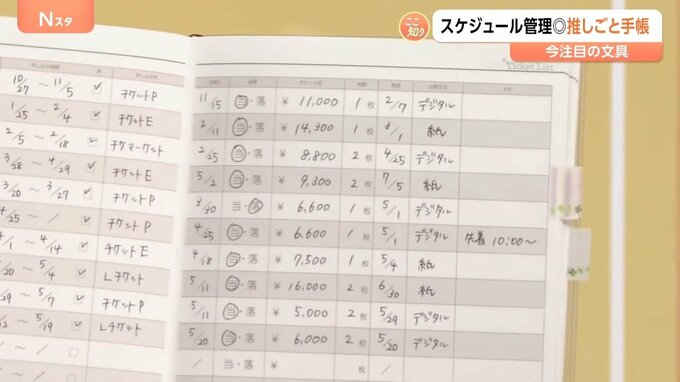 Nスタ
ここ知り
スケジュール管理◎推しごと手帳
今注目の文具
Ticket List
10/27 〜 11/5 チケットP
1/25 〜 2/4 チケットE
2/5 〜 2/18 チケマーケット
3/28 〜 4/29 チケットP
3/20 〜 3/27 チケットP
4/25 〜 / チケットP
4/1 〜 4/14 チケットE
5/4 Lチケット
5/7 チケットP
5/19 Lチケット
〜 /
〜 /
11/15 当・落 ¥ 11,000 1枚 2/7 デジタル
2/11 当・落 ¥ 14,300 1枚 3/1 紙
2/25 当・落 ¥ 8,800 2枚 4/25 デジタル
5/2 当・落 ¥ 9,300 2枚 7/5 紙
3/30 当・落 ¥ 6,600 1枚 5/1 デジタル
4/25 当・落 ¥ 6,600 1枚 5/1 デジタル 先着 10:00〜
4/18 当・落 ¥ 7,500 1枚 5/4 紙
5/11 当・落 ¥ 16,000 2枚 6/30 紙
5/11 当・落 ¥ 5,000 2枚 5/29 デジタル
5/20 当・落 ¥ 6,000 2枚 5/20 デジタル
/ 当・落 ¥ 枚 /